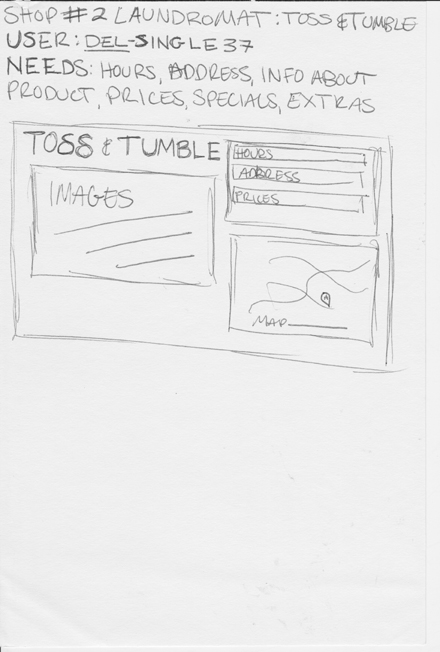 SHOP #2 LAUNDROMAT: TOSS & TUMBLE
USER: DEL-SINGLE 37
NEEDS: HOURS, ADDRESS, INFO ABOUT
PRODUCT, PRICES, SPECIALS, EXTRAS
TOSS & TUMBLE
IMAGES
HOURS
ADDRESS
PRICES
MAP